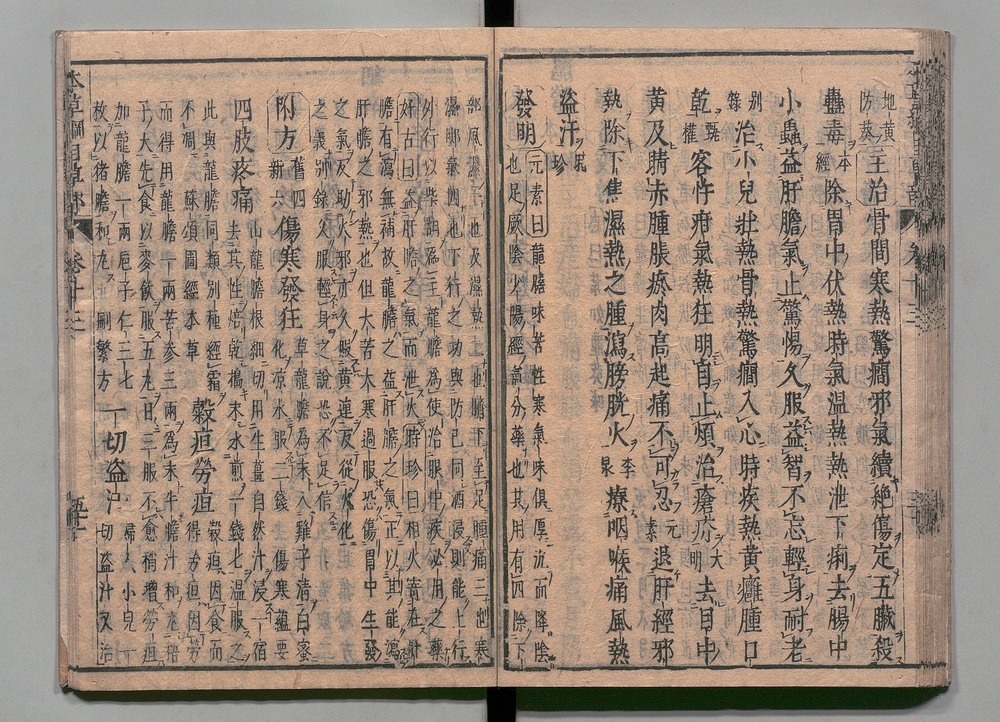 地黃防葵 主治 骨間寒熱驚癇邪氣續絕傷定五臟殺
蠱毒 本經 除胃中伏熱時氣溫熱熱泄下痢去腸中
小蟲益肝膽氣止驚惕久服益智不忘輕身耐老
別錄 治小兒壯熱骨熱驚癇入心時疾熱黃癰腫口
乾 甄權 客忤疳氣熱狂明目止煩治瘡疥 大明 去目中
黃及睛赤腫脹瘀肉高起痛不可忍 元素 退肝經邪
熱除下焦濕熱之腫瀉膀胱火 李杲 療咽喉痛風熱
盜汗 時珍
發明 元素曰龍膽味苦性寒氣味俱厚沉而降陰
也足厥陰少陽經氣分藥也其用有四除下
部風濕一也及濕熱二也臍下至足腫痛三也寒
濕脚氣四也下行之功與防己同酒浸則能上行
外行以柴胡爲主龍膽爲使治眼中疾必用之藥
好古曰益肝膽之氣而泄火時珍曰相火寄在肝
膽有瀉無補故龍膽之益肝膽之氣正以其能瀉
肝膽之邪熱也但大苦大寒過服恐傷胃中生發
之氣反助火邪亦久服黃連反從火化
之義別錄久服輕身之說恐不足信
附方 舊四新六 傷寒發狂 草龍膽爲末入雞子清白蜜
化涼水服二錢 傷寒蘊要
四肢疼痛 山龍膽根細切用生薑自然汁浸一宿
去其性焙乾搗末水煎一錢七溫服之
此與龍膽同類別種經霜
不凋 蘇頌圖經本草 穀疸勞疸 穀疸因食而
得勞疸因勞
而得用龍膽一兩苦參三兩爲末牛膽汁和丸梧
子大先食以麥飲服五丸日三服不愈稍增勞疸
加龍膽一兩巵子仁三七
枚以猪膽和丸 刪繁方 一切盜汗 婦人小兒一
切盜汗又治
本草綱目草部 卷十三